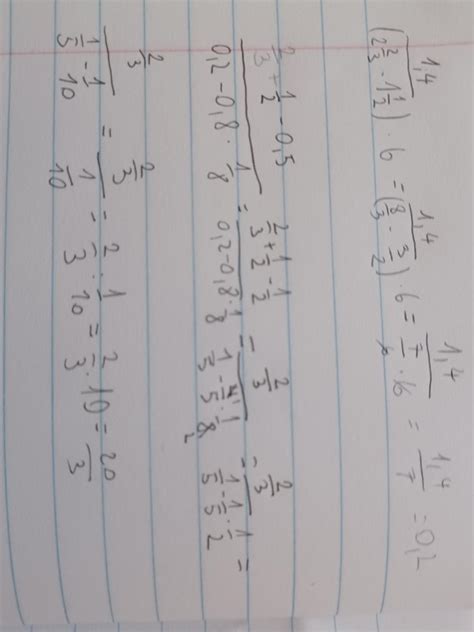 \frac{1,4}{(2\frac{2}{3} - 1\frac{1}{2}) \cdot 6} = \frac{1,4}{(\frac{8}{3} - \frac{3}{2}) \cdot 6} = \frac{1,4}{\frac{7}{6} \cdot 6} = \frac{1,4}{7} = 0,2
\frac{\frac{2}{3} + \frac{1}{2} - 0,5}{0,2 - 0,8 \cdot \frac{1}{8}} = \frac{\frac{2}{3} + \frac{1}{2} - \frac{1}{2}}{0,2 - 0,8 \cdot \frac{1}{8}} = \frac{\frac{2}{3}}{\frac{1}{5} - \frac{4}{5} \cdot \frac{1}{8}} = \frac{\frac{2}{3}}{\frac{1}{5} - \frac{1}{5} \cdot \frac{1}{2}} =
\frac{\frac{2}{3}}{\frac{1}{5} - \frac{1}{10}} = \frac{\frac{2}{3}}{\frac{1}{10}} = \frac{2}{3} : \frac{1}{10} = \frac{2}{3} \cdot 10 = \frac{20}{3}